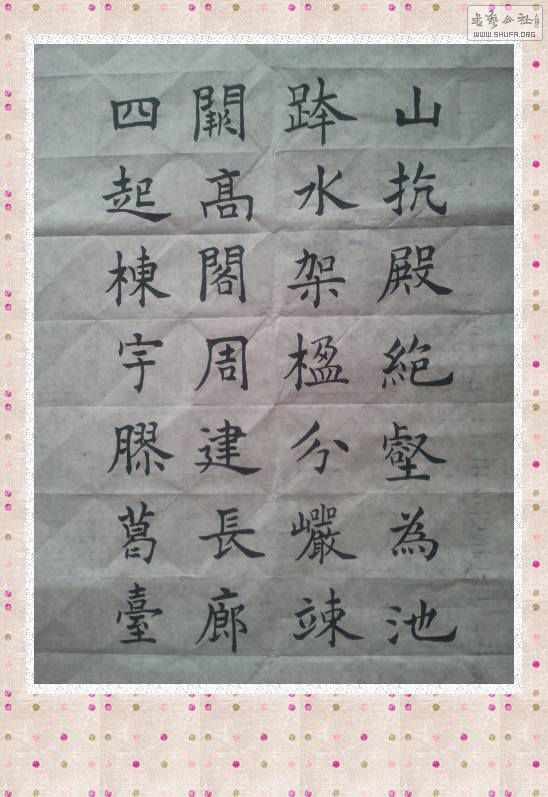 山抗殿絶壑為池
跨水架楹分巖竦
闕髙閣周建長廊
四起棟宇膠葛臺
书艺公社
WWW.SHUFA.ORG